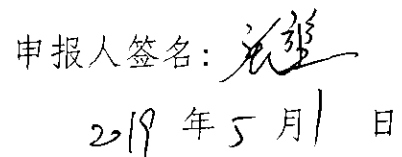 申报人签名:
2019 年 5 月 1 日